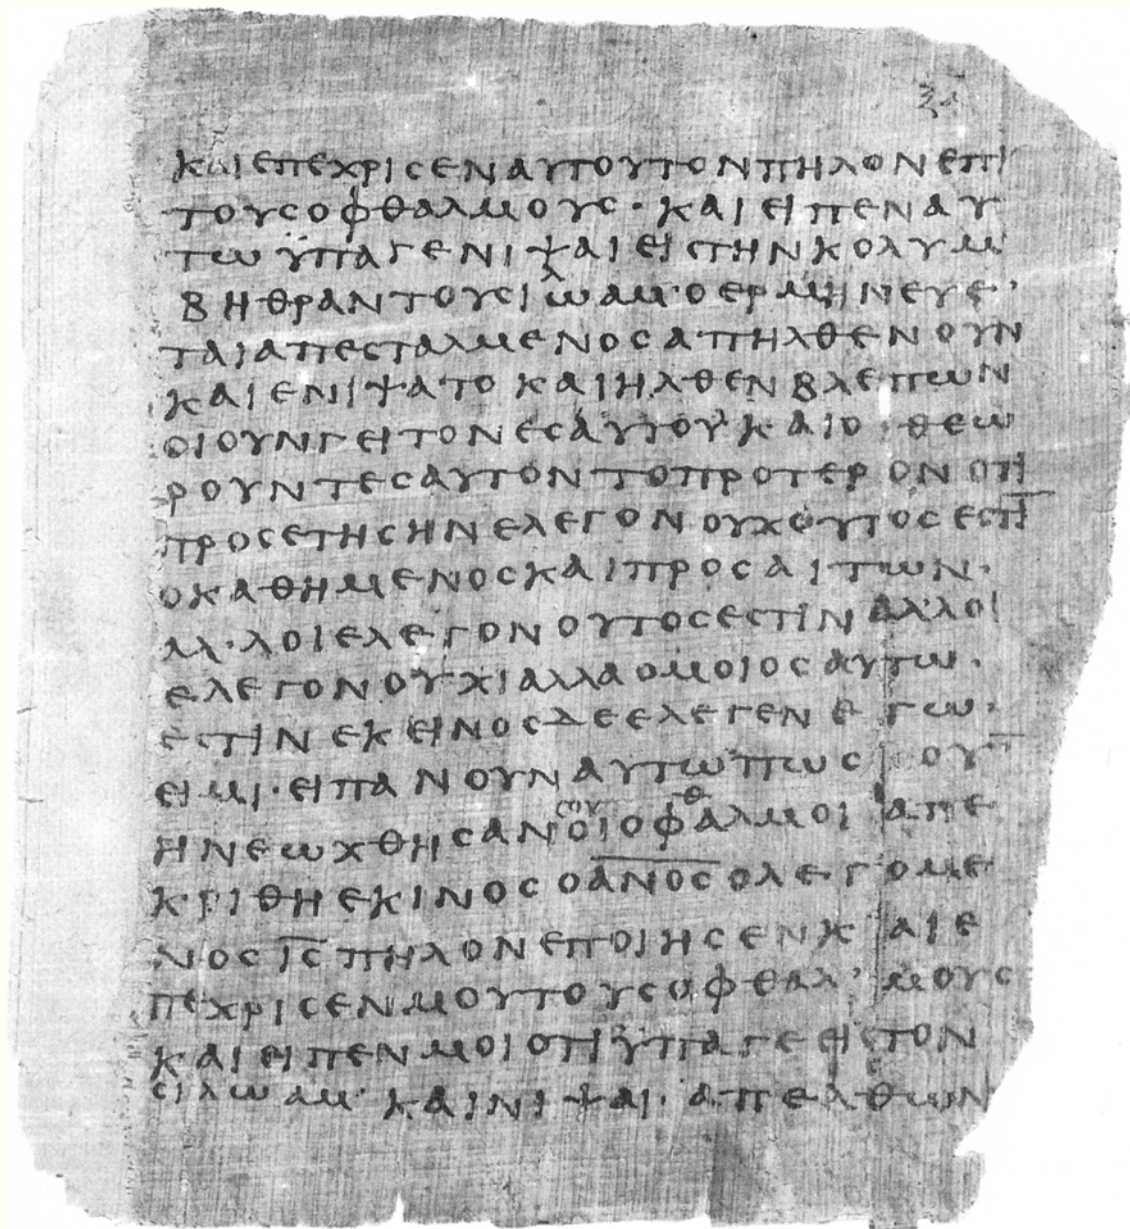 ΚΑΙΕΠΕΧΡΙϹΕΝΑΥΤΟΥΤΟΝΠΗΛΟΝΕΠΙ
ΤΟΥϹΟΦΘΑΛΜΟΥϹ·ΚΑΙΕΙΠΕΝΑΥ
ΤΩΫΠΑΓΕΝΙΨΑΙΕΙϹΤΗΝΚΟΛΥΜ
ΒΗΘΡΑΝΤΟΥϹΙΛΩΑΜ·ΟΕΡΜΗΝΕΥΕ·
ΤΑΙΑΠΕϹΤΑΛΜΕΝΟϹΑΠΗΛΘΕΝΟΥΝ
ΚΑΙΕΝΙΨΑΤΟΚΑΙΗΛΘΕΝΒΛΕΠΩΝ
ΟΙΟΥΝΓΕΙΤΟΝΕϹΑΥΤΟΥΚΑΙΟΙΘΕΩ
ΡΟΥΝΤΕϹΑΥΤΟΝΤΟΠΡΟΤΕΡΟΝΟΤΙ
ΠΡΟϹΕΤΗϹΗΝΕΛΕΓΟΝΟΥΧΟΥΤΟϹΕϹΤΙ̅
ΟΚΑΘΗΜΕΝΟϹΚΑΙΠΡΟϹΑΙΤΩΝ·
ΑΛ·ΛΟΙΕΛΕΓΟΝΟΥΤΟϹΕϹΤΙΝΑΛ'ΛΟΙ
ΕΛΕΓΟΝΟΥΧΙΑΛΛΑΟΜΟΙΟϹΑΥΤΩ·
ΕϹΤΙΝΕΚΕΙΝΟϹΔΕΕΛΕΓΕΝΕΓΩ·
ΕΙΜΙ·ΕΙΠΑΝΟΥΝΑΥΤΩΠΩϹΟΥ̅
ΗΝΕΩΧΘΗϹΑΝϹΟΥΟΙΟΦΘΑΛΜΟΙΑΠΕ
ΚΡΙΘΗΕΚΙΝΟϹΟΑ̅Ν̅Ο̅Ϲ̅ΟΛΕΓΟΜΕ
ΝΟϹΙ̅Ϲ̅ΠΗΛΟΝΕΠΟΙΗϹΕΝΚΑΙΕ
ΠΕΧΡΙϹΕΝΜΟΥΤΟΥϹΟΦΘΑΛ'ΜΟΥϹ
ΚΑΙΕΙΠΕΝΜΟΙΟΤΙΫΠΑΓΕΕΙϹΤΟΝ
ϹΙΛΩΑΜ'ΚΑΙΝΙΨΑΙ·ΑΠΕΛΘΩΝ